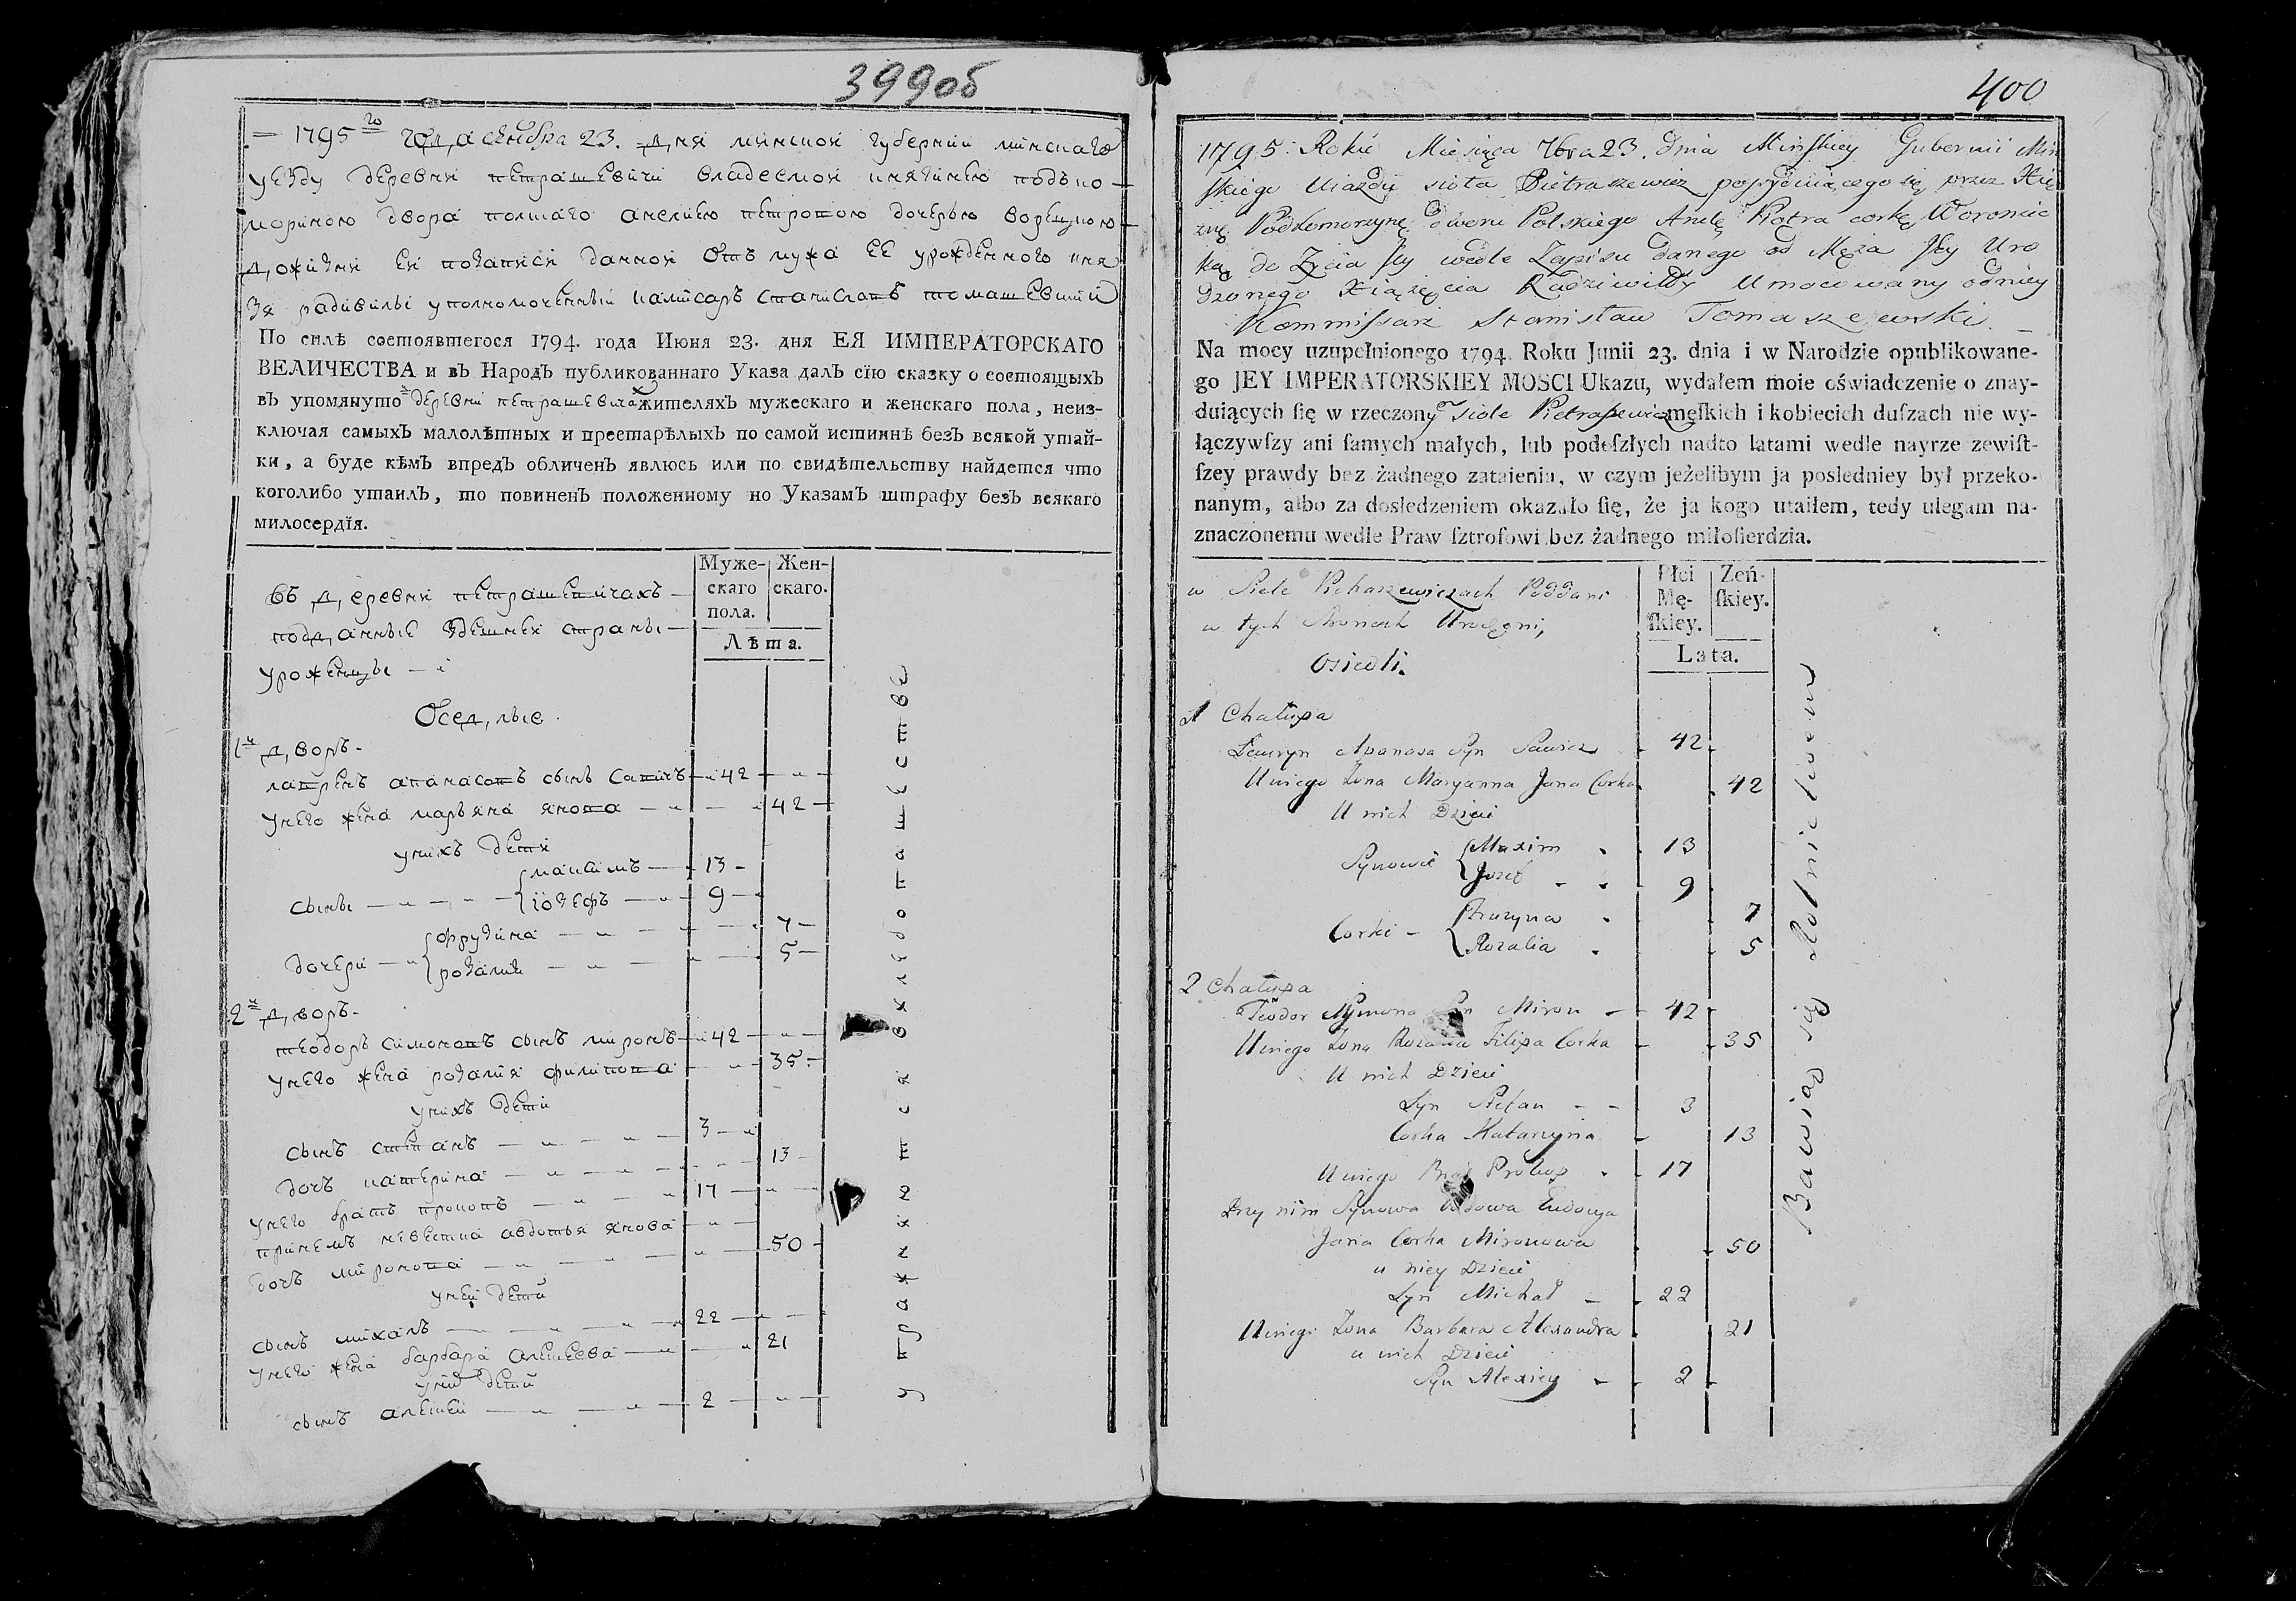 399об
1795го года сентября 23. дня минской губернии минскаго
уезду деревни петрашевичи владеемой княгинею подъко-
мориною двора полскаго анелиею петровою дочерью
ей
дожизни ей по записи данной отъ мужа ее урожденного кня
зя радивилы уполномоченный комисаръ станиславъ томашевский
По силѣ состоявшегося 1794. года Июня 23. дня ЕЯ ИМПЕРАТОРСКАГО
ВЕЛИЧЕСТВА и въ Народъ публикованнаго Указа далъ сїю сказку о состоящыхъ
въ упомянуто деревни петрашевичах жителяхъ мужескаго и женскаго пола, неиз-
ключая самыхъ малолѣтныхъ и престарѣлыхъ по самой истиннѣ безъ всякой утай-
ки, а буде кѣмъ впредъ обличенъ явлюсь или по свидѣтельству найдется что
коголибо утаилъ, то повиненъ положенному по Указамъ штрафу безъ всякаго
милосердїя.
Муже-
скаго
пола.
Жен-
скаго.
Лѣта.
въ деревни петрашевичахъ
подданные здешней страны
уроженцы
Оседлые
1й дворъ
лавренъ апанасовъ сынъ савичъ 42
унего жена марьяна янова 42
унихъ дети
сыны { максимъ 13
iозефъ 9
дочери { фрузина 7
розалия 5
2й дворъ
теодоръ симоновъ сынъ миронъ 42
унего жена розалия филипова 35
унихъ дети
сынъ стефанъ 3
дочь катерина 13
унего братъ прокопъ 17
принемъ невестка авдотья янова
дочь миронова 50
уней дети
сынъ михалъ 22
унего жена барбара алексеева 21
уних дети
сынъ алексей 2
упражняются в хлебопашестве
400
1795. Roku Miesiąca 7bra 23. Dnia Mińskiey Gubernii Miń
skiego Ujazdu sioła Pietraszewicz przez Xię
żnę Podkomorzynę dworu Polskiego Anelę Piotra corkę Woronic
ką do Życia Jey wedle Zapisu danego od Męża Jey Uro
dzonego Xiążęcia Radziwiłły Umocowany odniey
Kommissarz Stanisław Tomaszewski
Na mocy uzupełnionego 1794. Roku Junii 23. dnia i w Narodzie opublikowane-
go JEY IMPERATORSKIEY MOSCI Ukazu, wydałem moie oświadczenie o znay-
duiących ſię w rzeczony siole Pietraszewicz męſkich i kobiecich duſzach nie wy-
łączywſzy ani ſamych małych, lub podeſzłych nadto latami wedle nayrze zewiſt-
ſzey prawdy bez żadnego zataienia, w czym jeżelibym ja posledniey był przeko-
nanym, albo za dosledzeniem okazało ſię, że ja kogo utaiłem, tedy ulegam na-
znaczonemu wedle Praw ſztrofowi bez żadnego miłoſierdzia.
Płci
Mę-
ſkiey.
Zeń-
ſkiey.
Lata.
w Siele Pietraszewiczach Poddani
w tych Stronach Urodzeni,
Osiedli.
1 Chałupa
Ławryn Apanasa Syn Sawicz 42
U niego Żona Maryanna Jana Corka 42
U nich Dzieci
Synowie { Maxim 13
Jozef 9
Corki { Fruzyna 7
Rozalia 5
2 Chałupa
Teodor Symona Syn Miron 42
U niego Żona Rozalia Filipa Corka 35
U nich Dzieci
Syn Stefan 3
Corka Katarzyna 13
U niego Brat Prokop 17
Przy nim Synowa Wdowa Eudokya
Jana Corka Mironowa 50
u niey Dzieci
Syn Michał 22
U niego Żona Barbara Alexandra 21
u nich Dzieci
Syn Alexiey 2
Bawią się Rolnictwem